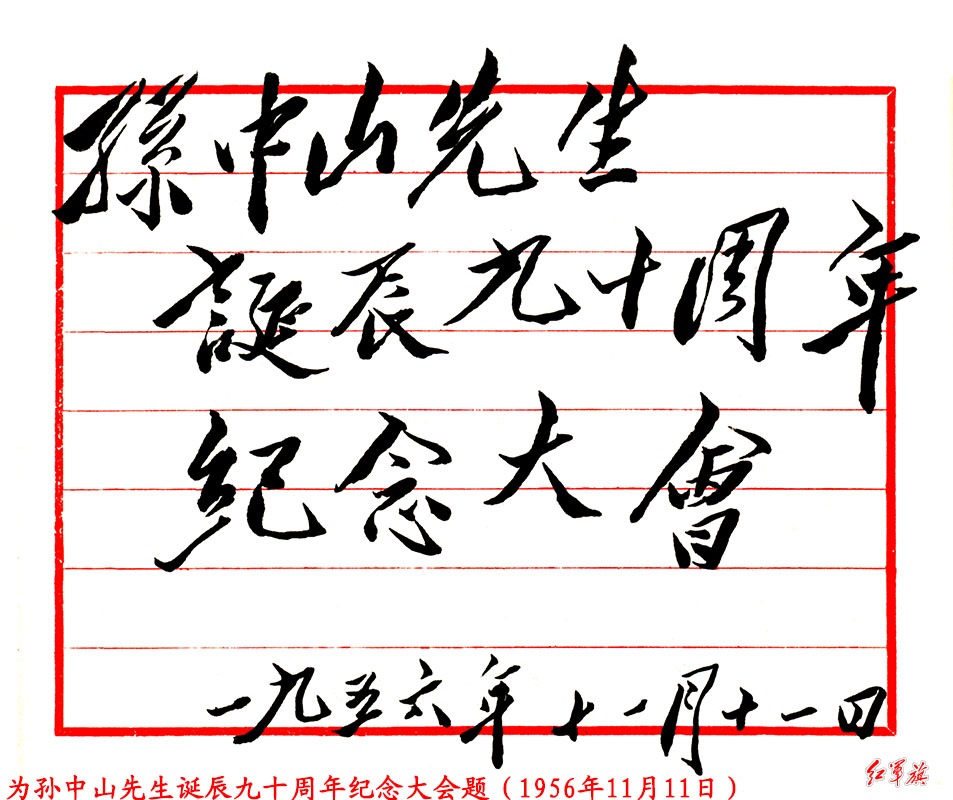 孫中山先生
誕辰九十周年
紀念大會
一九五六年十一月十一日
红军旗
为孙中山先生诞辰九十周年纪念大会题（1956年11月11日）